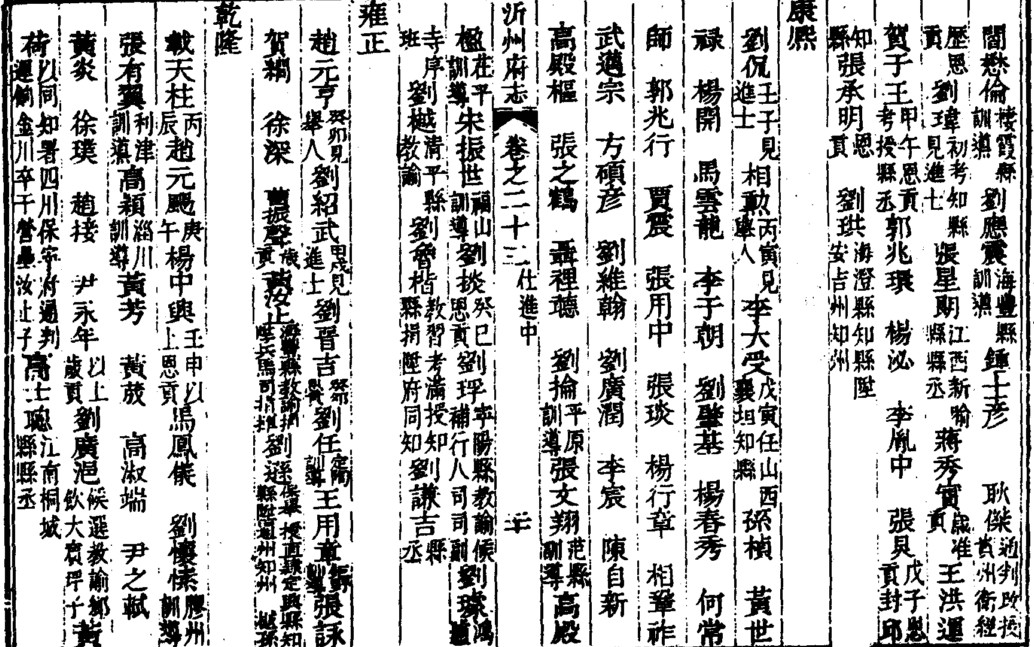 閻懋倫棲霞縣訓導　劉應震海豐縣訓導　鍾士彥　耿傑通判改授黃州衛經
歷恩貢　劉瑋初考知縣見進士　張星期江西新喻縣縣丞　蔣秀實歲貢　王洪運
賀子王甲午恩貢考授縣丞　郭兆環　楊泌　李胤中　張貝戊子恩貢封　邱
知縣　張承明恩貢　劉琪海澄縣知縣陞安吉州知州
康熙
劉侃壬子見進士　相勳丙寅見舉人　李大受戊寅任山西襄垣知縣　孫楨　黃世
祿　楊開　馬雲龍　李子朝　劉肇基　楊春秀　何常
師　郭兆行　賈震　張用中　張琰　楊行章　相肇祚
武邁宗　方碩彥　劉維翰　劉廣潤　李宸　陳自新
高殿樞　張之鶴　聶裡聽　劉掄平原訓導　張文翔范縣訓導　高殿
沂州府志　卷之二十三　仕進中
楹茌平訓導　宋振世福山訓導　劉掞癸巳恩貢　劉玶寧陽縣教諭候補行人司司副　劉璩鴻臚
寺序班　劉樾清平縣教諭　劉魯楷教習考滿授知縣捐陞府同知　劉謙吉縣丞
雍正
趙元亨癸卯見舉人　劉紹武甲戌見進士　劉晉吉　劉任訓導　王用章訓導　張詠
賀繝　徐深　曹振聲歲貢　黃汝止海豐縣教諭　劉遜
乾隆
戴天柱丙辰　趙元颺庚午　楊中與壬申以上恩貢　馬鳳儀　劉懷悚膠州訓導
張有翼利津訓導　高穎淄川訓導　黃芳　黃莪　高淑端　尹之軾
黃炎　徐璞　趙接　尹永年以上歲貢　劉廣浥候選教諭鄉飲大賓玶子　黃
荷以同知署四川保寧府通判運餉金川卒于營壘汝止子　高士聰江南桐城縣縣丞